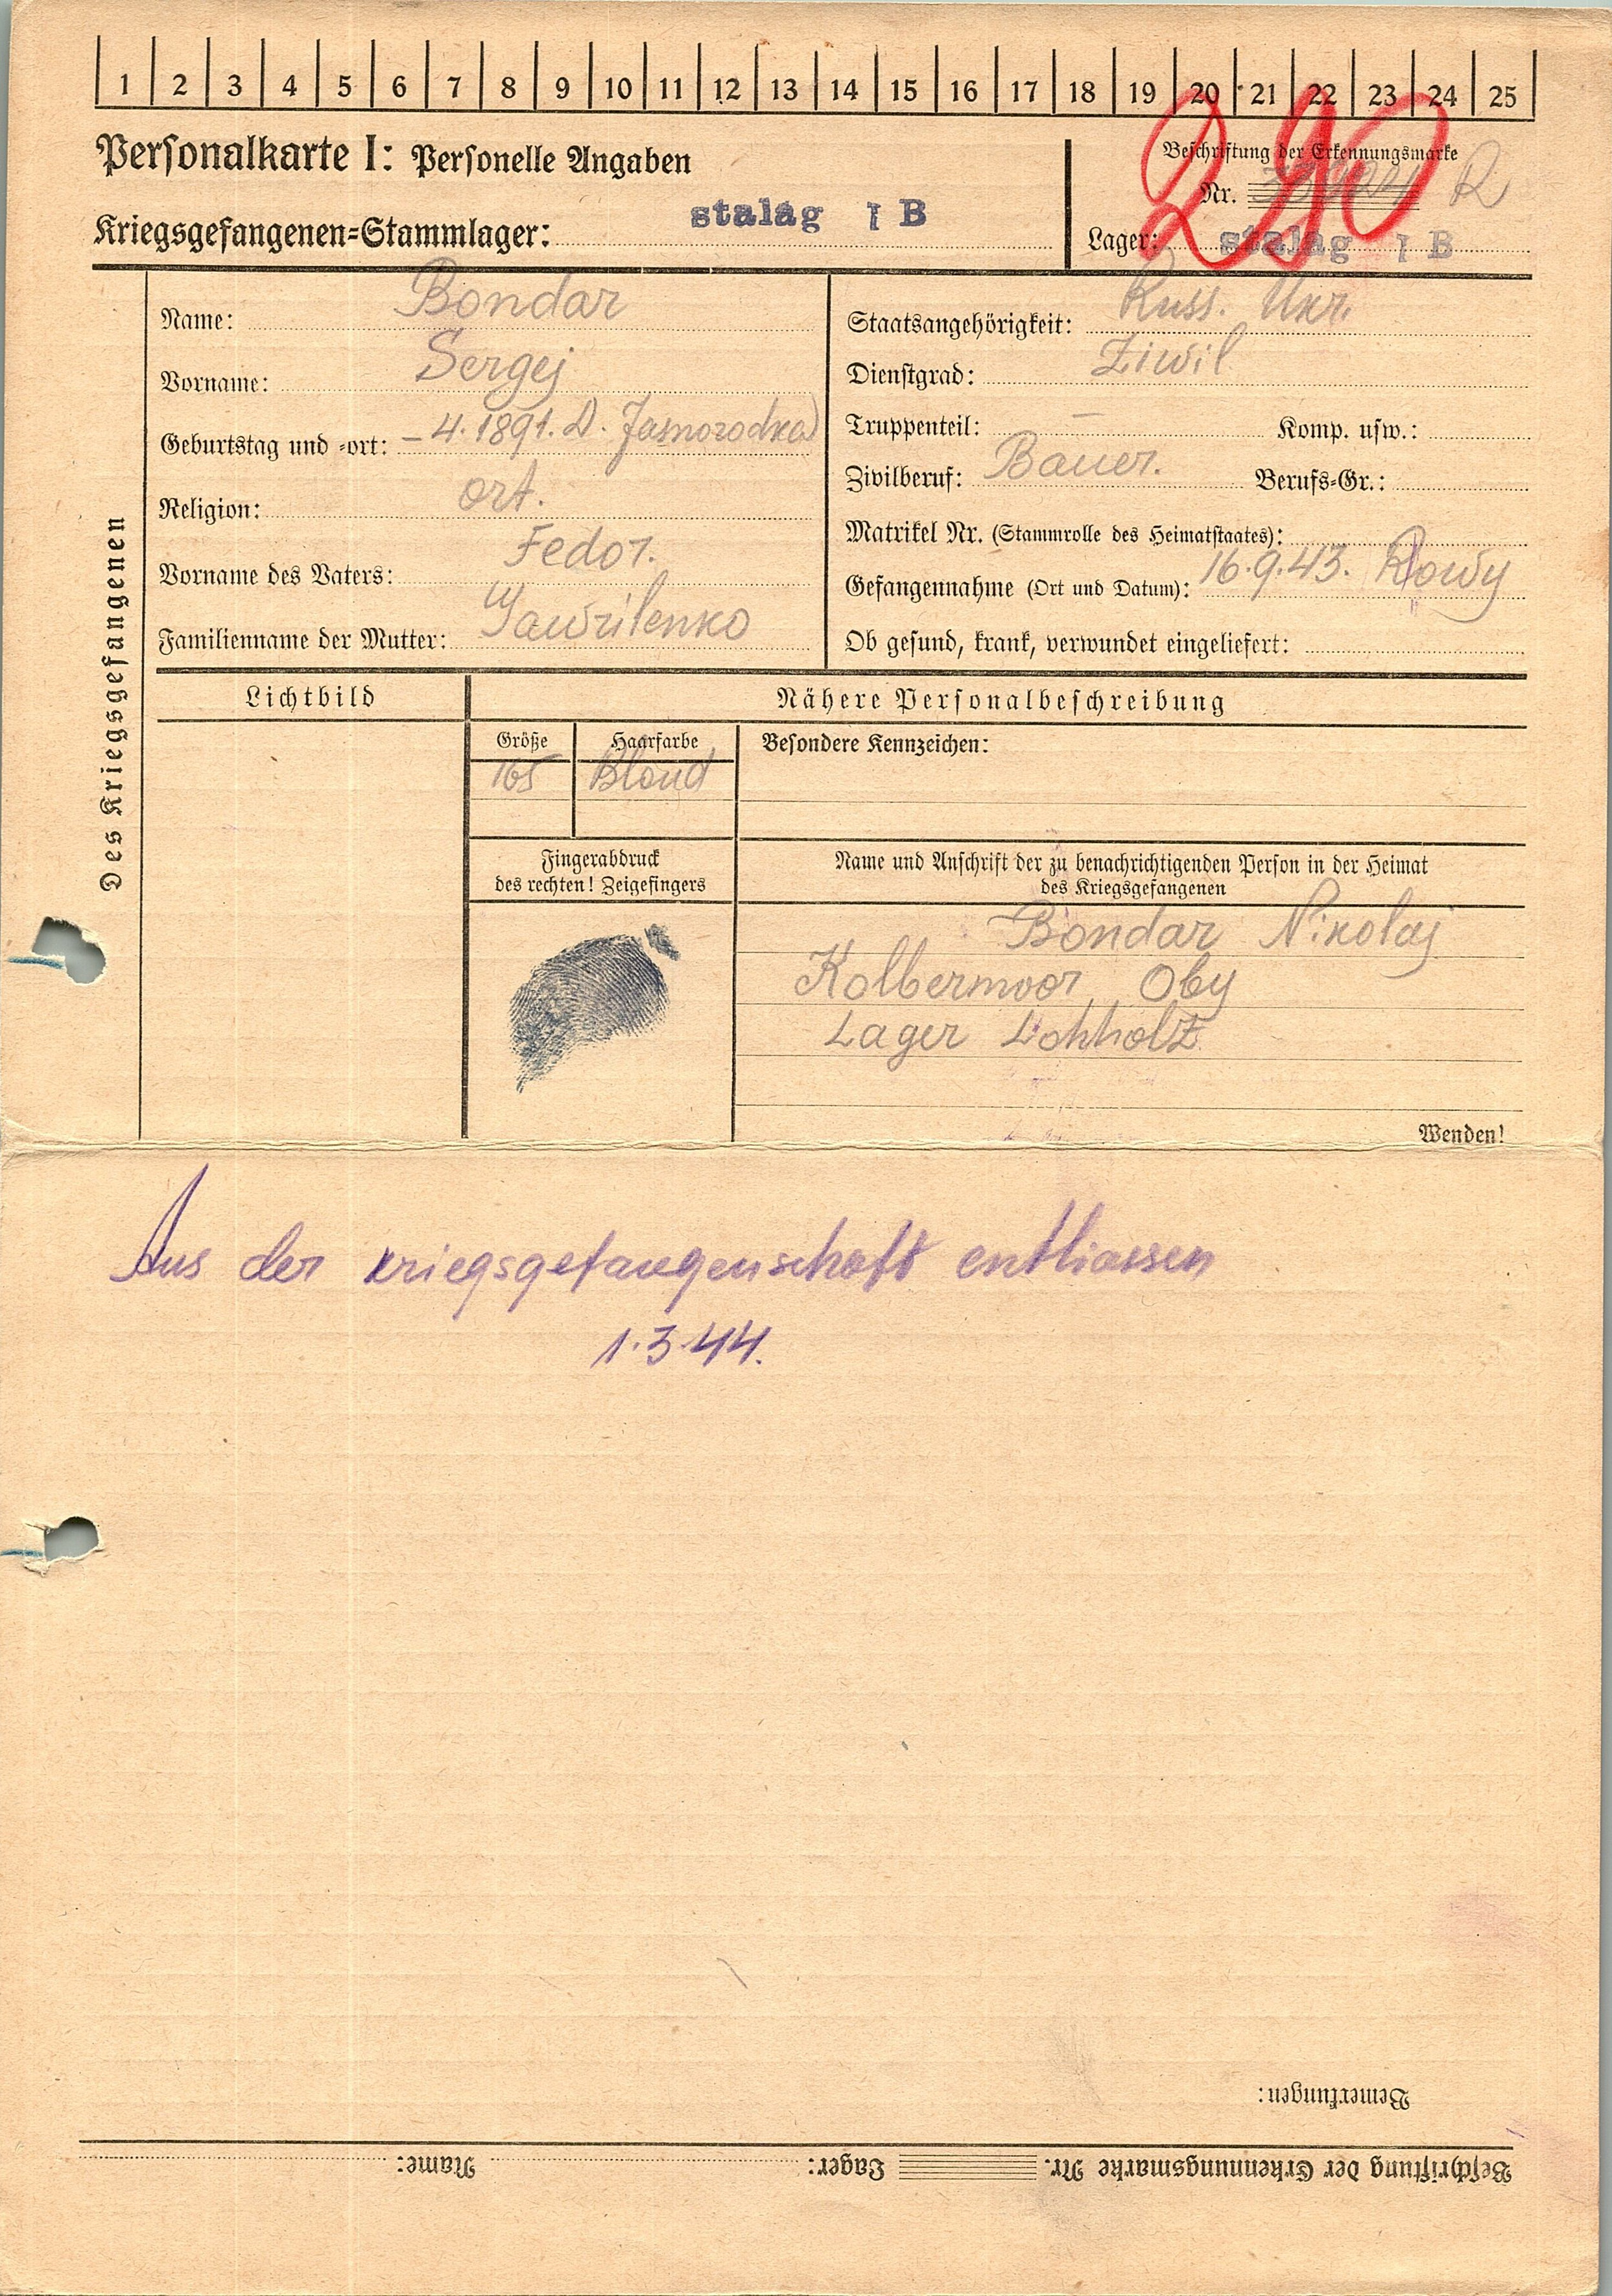 1 2 3 4 5 6 7 8 9 10 11 12 13 14 15 16 17 18 19 20 21 22 23 24 25
290
Personalkarte I: Personelle Angaben
Beschriftung der Erkennungsmarke
Nr. R
Kriegsgefangenen-Stammlager: stalag I B
Lager: stalag I B
Des Kriegsgefangenen
Name: Bondar
Vorname: Sergej
Geburtstag und -ort: – 4. 1891. D. Jasnorodka
Religion: ort.
Vorname des Vaters: Fedor.
Familienname der Mutter: Gawrilenko
Staatsangehörigkeit: Russ. Ukr.
Dienstgrad: Ziwil
Truppenteil: – Komp. usw.:
Zivilberuf: Bauer. Berufs-Gr.:
Matrikel Nr. (Stammrolle des Heimatstaates):
Gefangennahme (Ort und Datum): 16.9.43. Rowy
Ob gesund, krank, verwundet eingeliefert:
Lichtbild
Nähere Personalbeschreibung
Größe Haarfarbe Besondere Kennzeichen:
165 Blond
Fingerabdruck
des rechten! Zeigefingers
Name und Anschrift der zu benachrichtigenden Person in der Heimat
des Kriegsgefangenen
Bondar Nikolaj
Kolbermoor Oby
Lager Lohholz
Wenden!
Aus der kriegsgefangenschaft entliassen
1.3.44.
Bemerkungen:
Beschriftung der Erkennungsmarke Nr. Lager: Name: